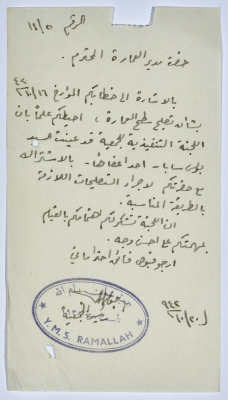 الرقم ١٤/٥
حضرة مدير العمارة المحترم .
بالاشارة الى خطابكم المؤرخ ٤٢/٢/١٦
بشأن تصليح سطح العمارة ، احيطكم علماً بان
اللجنة التنفيذية للجمعية قد عينت السيد
بولس سابا احد اعضائها بالاشتراك
مع حضرتكم لاجراء التصليحات اللازمة
بالطريقة المناسبة .
ان اللجنة تشكركم لاهتمامكم بالقيام
بمهمتكم على احسن وجه .
ارجو قبول فائق احترامي
رئيس الجمعية
Y. M. S. RAMALLAH